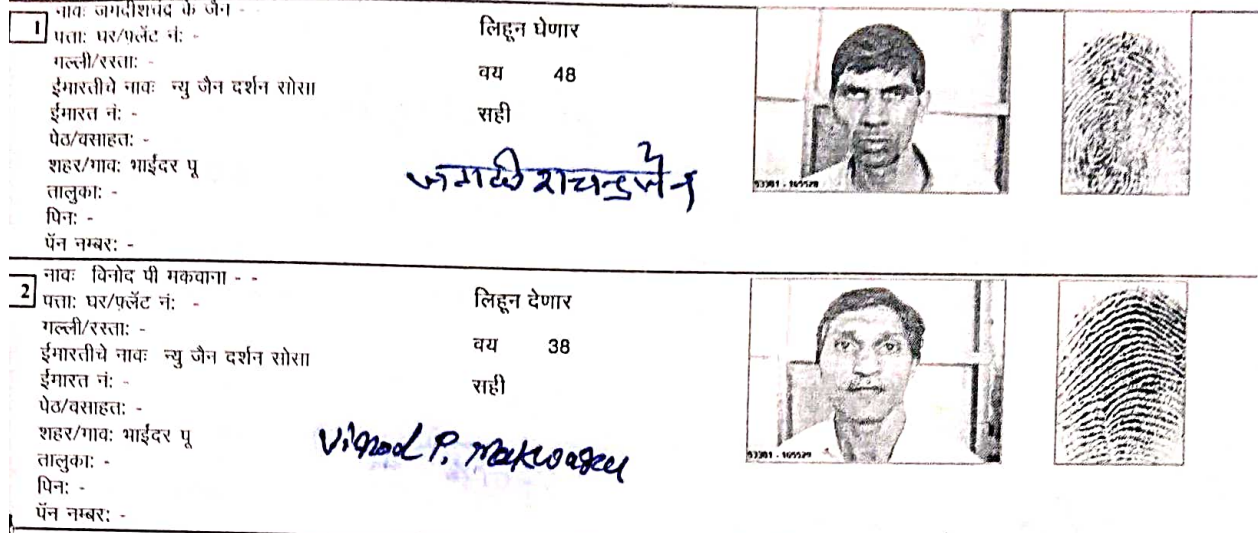 1
नावः जगदीशचंद के जैन - -
पत्ताः घर/फ़्लॅट नंः -
गल्ली/रस्ताः -
ईमारतीचे नावः न्यु जैन दर्शन सोसा
ईमारत नंः -
पेठ/वसाहतः -
शहर/गावः भाईंदर पू
तालुकाः -
पिनः -
पॅन नम्बरः -
लिहून घेणार
वय 48
सही
जगदीशचन्द्र जैन
53301 - 165520
2
नावः विनोद पी मकवाना - -
पत्ताः घर/फ़्लॅट नंः -
गल्ली/रस्ताः -
ईमारतीचे नावः न्यु जैन दर्शन सोसा
ईमारत नंः -
पेठ/वसाहतः -
शहर/गावः भाईंदर पू
तालुकाः -
पिनः -
पॅन नम्बरः -
लिहून देणार
वय 38
सही
Vinod P. Makwana